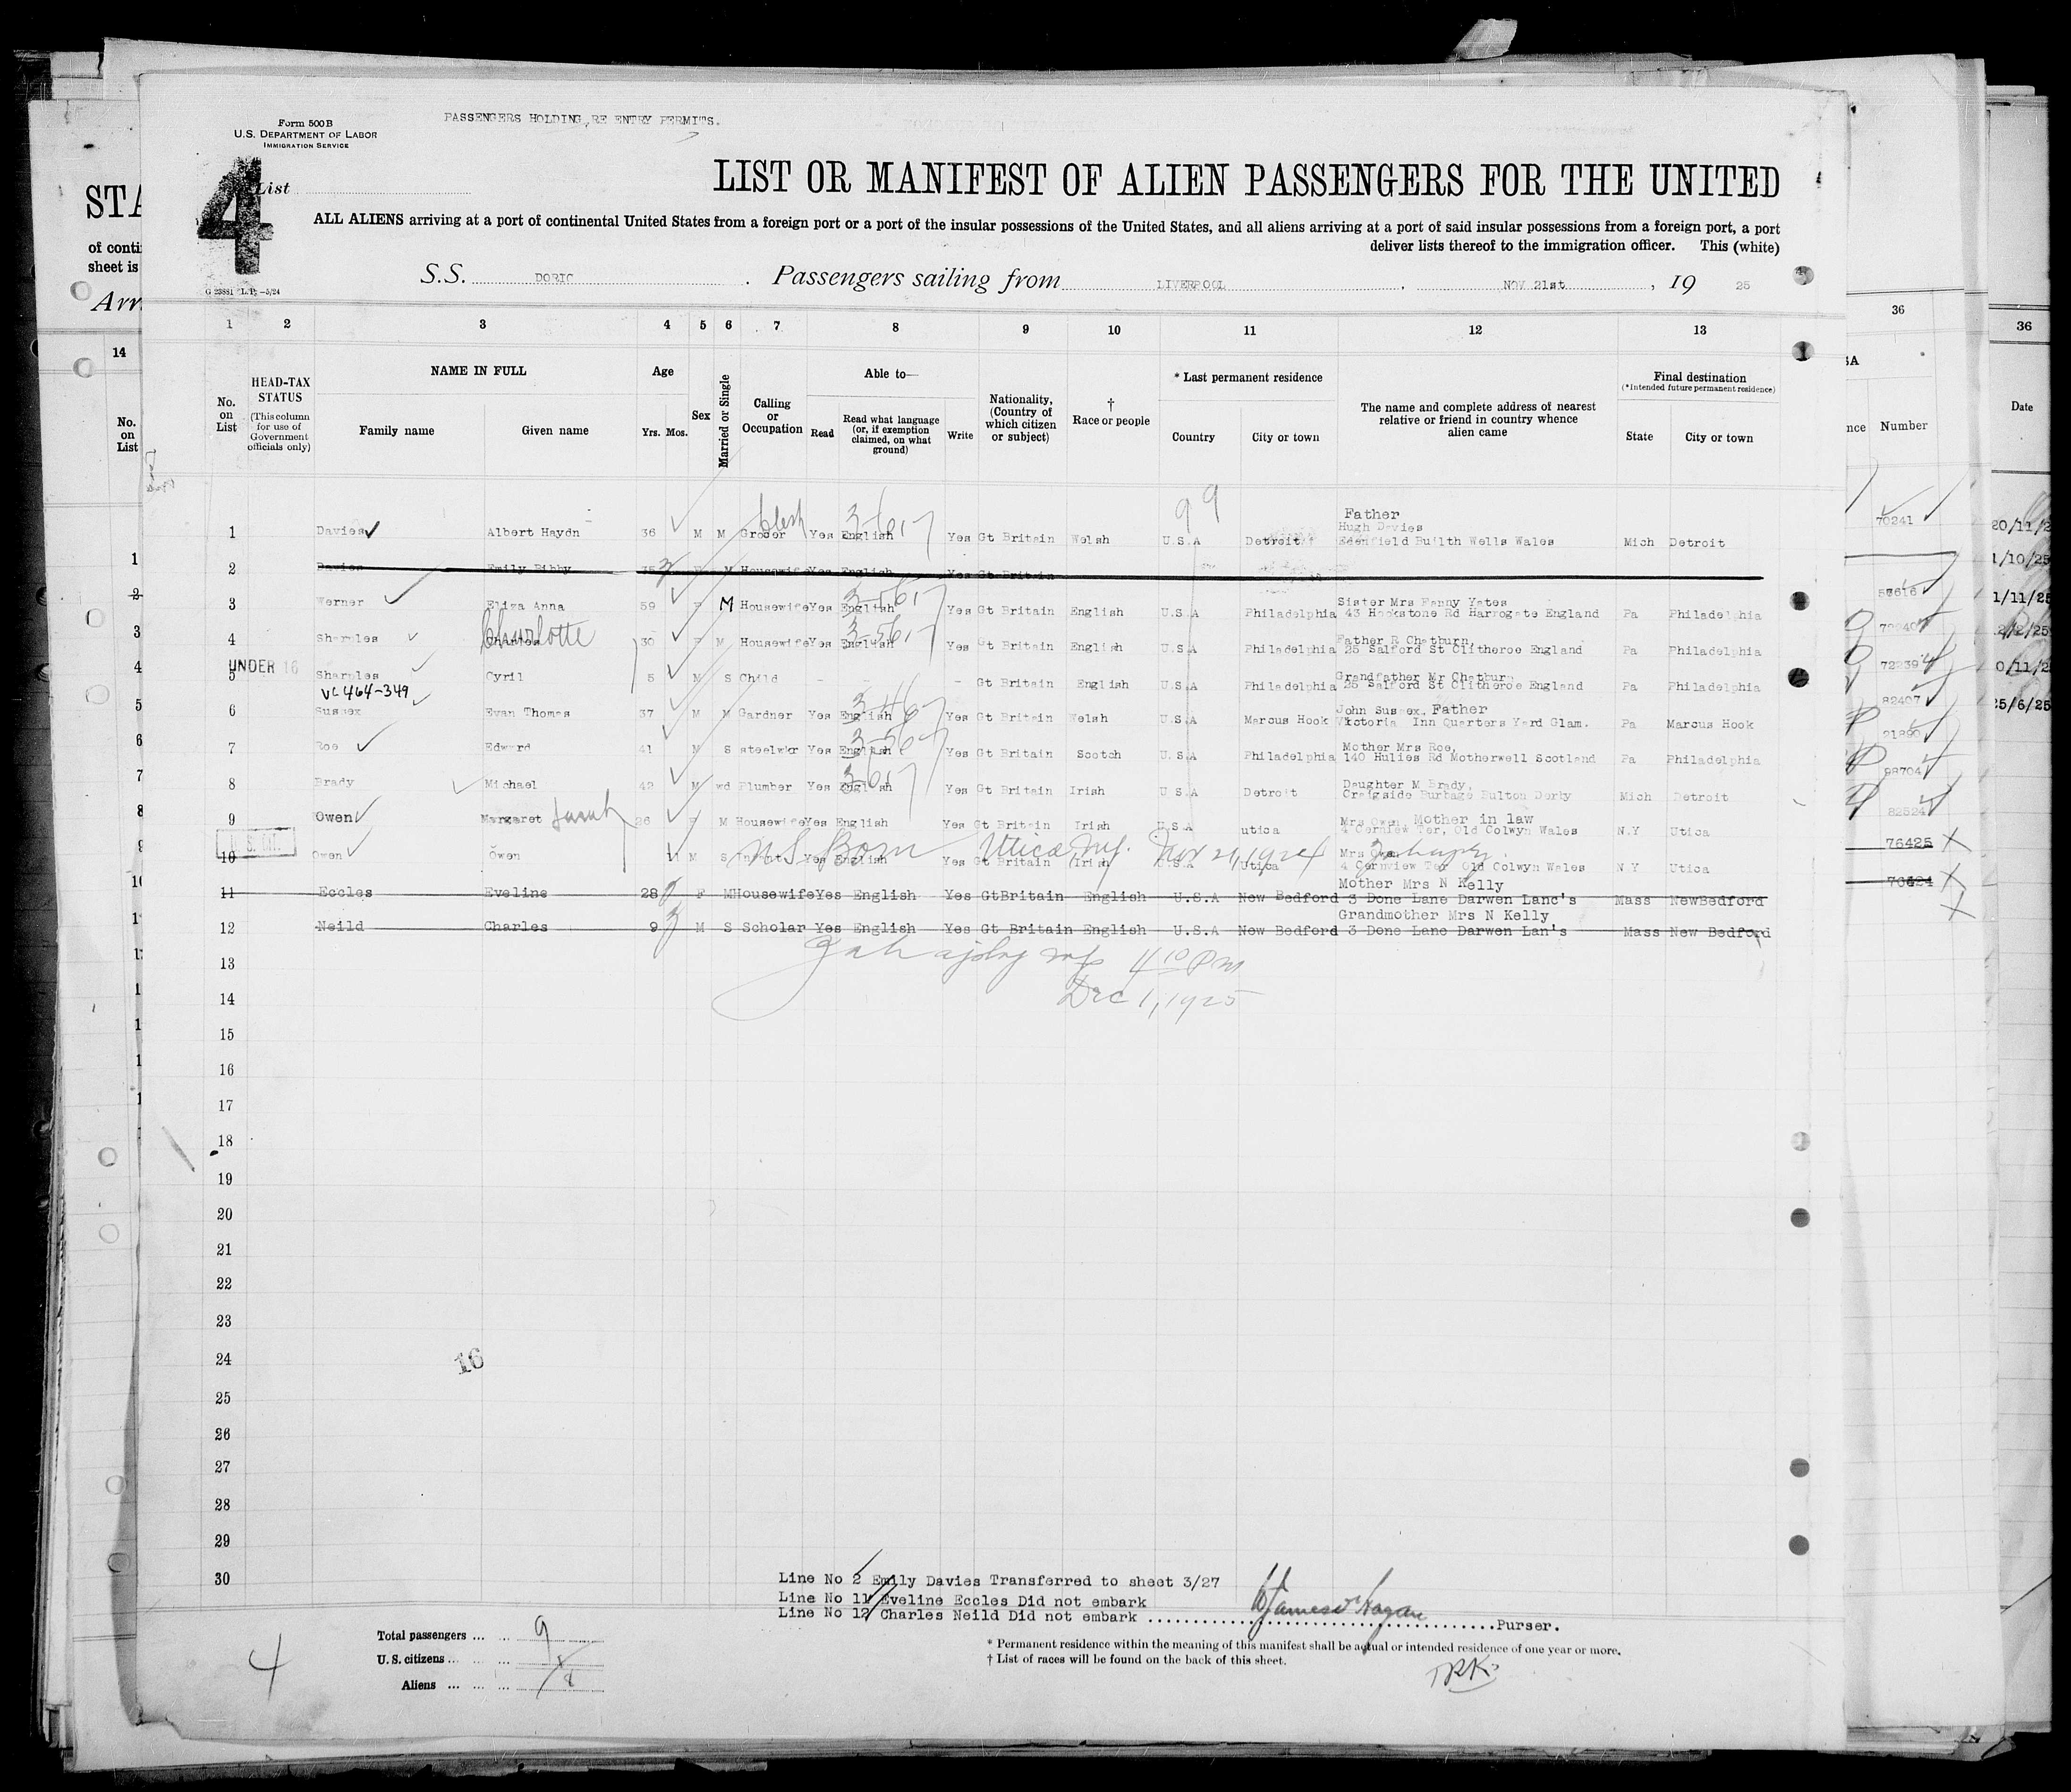 Form 500 B
U.S. DEPARTMENT OF LABOR
IMMIGRATION SERVICE
PASSENGERS HOLDING RE ENTRY PERMITS.
4
List
LIST OR MANIFEST OF ALIEN PASSENGERS FOR THE UNITED
ALL ALIENS arriving at a port of continental United States from a foreign port or a port of the insular possessions of the United States, and all aliens arriving at a port of said insular possessions from a foreign port, a port
deliver lists thereof to the immigration officer. This (white)
S.S. DORIC . Passengers sailing from LIVERPOOL , NOV 21st , 19 25
STA
of conti
sheet is
Arr
1 2 3 4 5 6 7 8 9 10 11 12 13
14 36 36
No. on List
HEAD-TAX STATUS
(This column for use of Government officials only)
NAME IN FULL
Family name Given name
Age
Yrs. Mos.
Sex
Married or Single
Calling or Occupation
Able to—
Read
Read what language (or, if exemption claimed, on what ground)
Write
Nationality, (Country of which citizen or subject)
† Race or people
* Last permanent residence
Country City or town
The name and complete address of nearest relative or friend in country whence alien came
Final destination
(*Intended future permanent residence)
State City or town
Number
Date
Father
Hugh Davies
1 Davies Albert Haydn 36 M M Grocer Clerk Yes English Yes Gt Britain Welsh U.S.A Detroit Edenfield Builth Wells Wales Mich Detroit 70241
2 Davies Emily Bibby 35 F M Housewife Yes English Yes Gt Britain
Sister Mrs Fanny Yates
3 Werner Eliza Anna 59 F M Housewife Yes English Yes Gt Britain English U.S.A Philadelphia 43 Hookstone Rd Harrogate England Pa Philadelphia
Father R Chatburn,
4 Sharples Charles Charlotte 30 F M Housewife Yes English Yes Gt Britain English U.S.A Philadelphia 25 Salford St Clitheroe England Pa Philadelphia
UNDER 16
Grandfather Mr Chatburn
5 Sharples Cyril 5 M S Child - - Gt Britain English U.S.A Philadelphia 25 Salford St Clitheroe England Pa Philadelphia 72239
VL 464-349
John Sussex, Father
6 Sussex Evan Thomas 37 M M Gardner Yes English Yes Gt Britain Welsh U.S.A Marcus Hook Victoria Inn Quarters Yard Glam. Pa Marcus Hook 82407
Mother Mrs Roe,
7 Roe Edward 41 M S steelwkr Yes English Yes Gt Britain Scotch U.S.A Philadelphia 140 Hulies Rd Motherwell Scotland Pa Philadelphia 21890
Daughter M Brady,
8 Brady Michael 42 M wd Plumber Yes English Yes Gt Britain Irish U S.A Detroit Craigside Burbage Bulton Derby Mich Detroit 98704
Mrs Owen, Mother in law
9 Owen Margaret Sarah 26 F M Housewife Yes English Yes Gt Britain Irish U.S.A utica 4 Cernview Ter, Old Colwyn Wales N.Y Utica 82524
Mrs Owen
10 Owen Owen 11 M S Infant Yes English Yes Gt Britain Irish U.S.A Utica 4 Cernview Ter Old Colwyn Wales N Y Utica 76425
US Born Utica NY. Nov 21, 1924
Mother Mrs N Kelly
11 Eccles Eveline 28 F M Housewife Yes English Yes GtBritain English U.S.A New Bedford 3 Done Lane Darwen Lanc's Mass NewBedford
Grandmother Mrs N Kelly
12 Neild Charles 9 M S Scholar Yes English Yes Gt Britain English U.S.A New Bedford 3 Done Lane Darwen Lan's Mass New Bedford
4 10 PM
Dec 1, 1925
13
14
15
16
17
18
19
20
21
22
23
24
16
25
26
27
28
29
30
Line No 2 Emily Davies Transferred to sheet 3/27
Line No 11 Eveline Eccles Did not embark
Line No 12 Charles Neild Did not embark ........Purser.
Total passengers ... ... 9
U.S. citizens ... ... ... 1
Aliens ... ... ... 8
4
* Permanent residence within the meaning of this manifest shall be actual or intended residence of one year or more.
† List of races will be found on the back of this sheet.